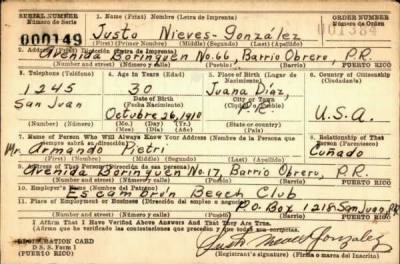 SERIAL NUMBER 1. Name (Print) Nombre (Letra de Imprenta) ORDER NUMBER
Número de Serie Número de Orden
000149 Justo Nieves-González 001384
(First) (Primer Nombre) (Middle) (Segundo) (Last) (Apellido)
2. Address (Print) Dirección (Letra de Imprenta)
Avenida Borinquen No. 66, Barrio Obrero, P.R.
(Number and street) (Número y calle) (Town) (Pueblo) (Barrio) PUERTO RICO
3. Telephone (Teléfono) 4. Age in Years (Edad) 5. Place of Birth (Lugar de Nacimiento) 6. Country of Citizenship (Ciudadanía)
1245 30 Juana Díaz,
San Juan Date of Birth (Fecha Nacimiento) City or Town P.R.
Octubre 26, 1910 U.S.A.
(Mo.) (Mes) (Day) (Día) (Yr.) (Año) (State or country) (Estado o país)
7. Name of Person Who Will Always Know Your Address (Nombre de la Persona que siempre sabrá su dirección) 8. Relationship of That Person (Parentesco)
Mr. Armando Pietri Cuñado
(First) (Primer Nombre) (Middle) (Segundo) (Last) (Apellido)
9. Address of That Person (Dirección de esa persona)
Avenida Borinquen No. 17, Barrio Obrero, P.R.
(Number and street) (Número y calle) (Town) (Pueblo) (Barrio) PUERTO RICO
10. Employer's Name (Nombre del Patrono)
Escambrón Beach Club
11. Place of Employment or Business (Dirección del empleo o negocio) P.O. Box 1218 San Juan, P.R.
(Number and street) (Número y calle) (Town) (Pueblo) (Barrio) PUERTO RICO
I Affirm That I Have Verified Above Answers And That They Are True.
(Afirmo que he verificado las contestaciones que preceden y que todas son correctas.)
REGISTRATION CARD
D. S. S. Form 1 Justo Nieves González
(PUERTO RICO) (Registrant's signature) (Firma o marca del Inscrito)